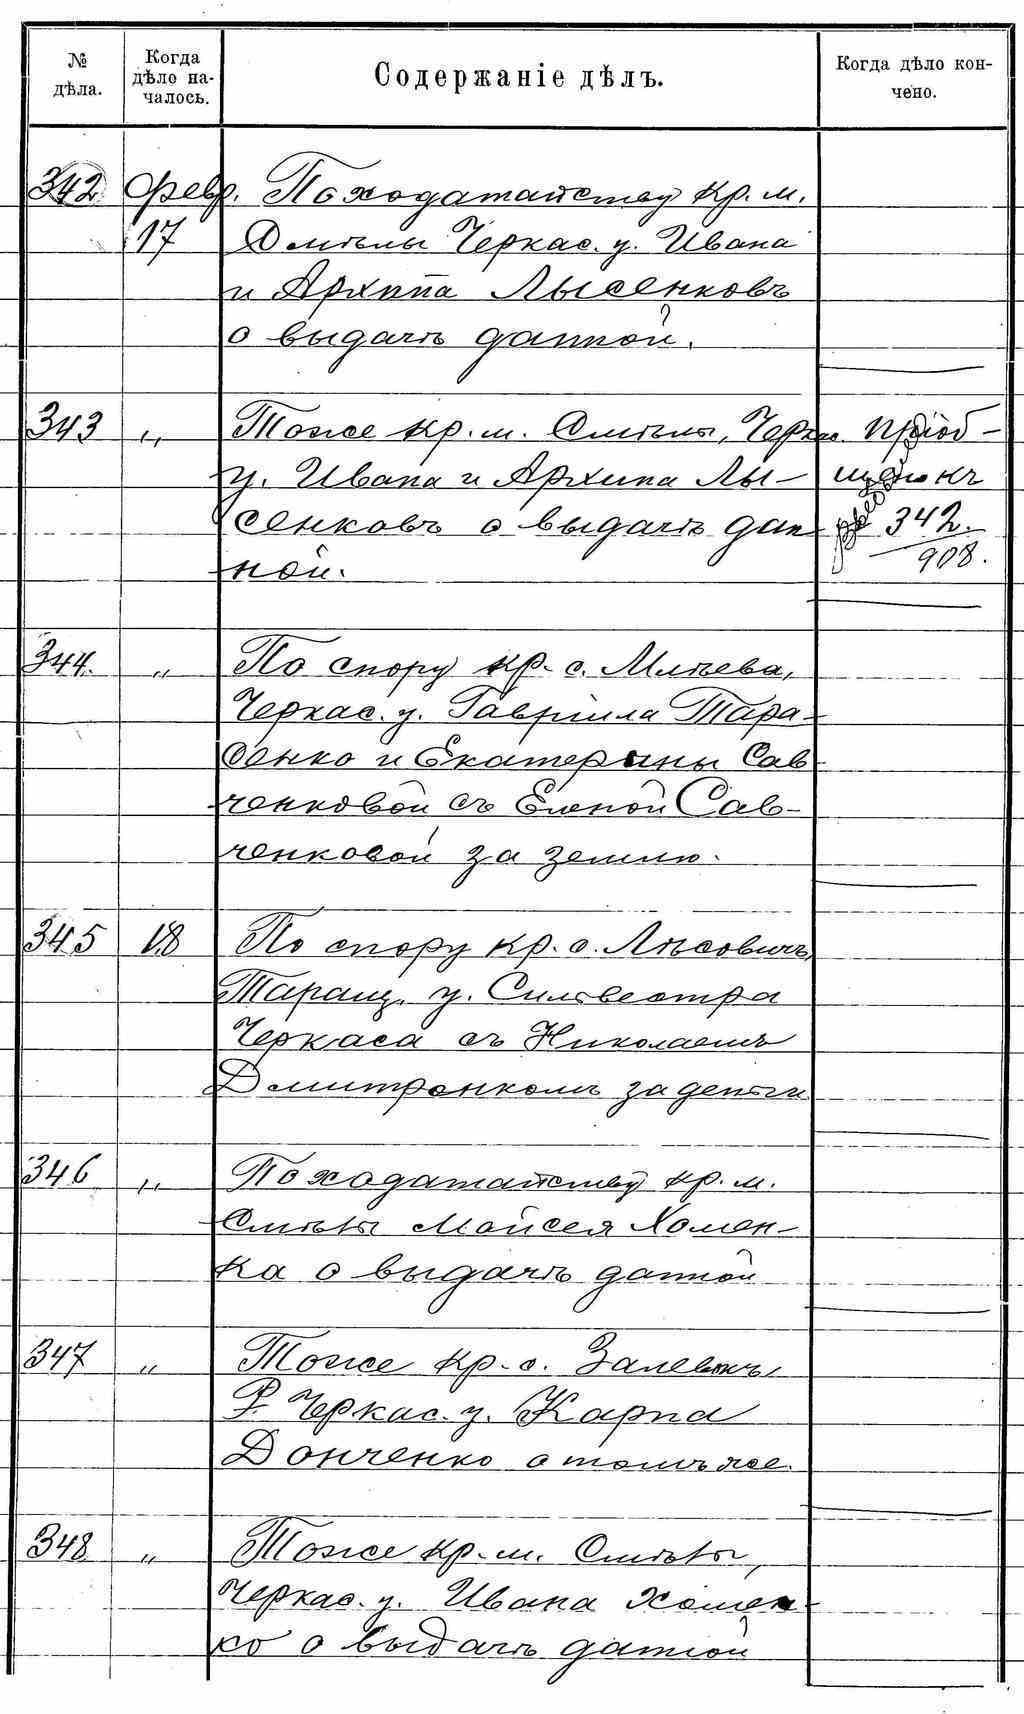 № дѣла.
Когда дѣло началось.
Содержаніе дѣлъ.
Когда дѣло кончено.
342 Февр. По ходатайству кр. м.
17 Смѣлы Черкас. у. Ивана
и Архипа Лысенковъ
о выдачѣ данной.
343 „ Тоже кр. м. Смѣлы, Черкас. Пріоб-
у. Ивана и Архипа Лы- щено къ
сенковъ о выдачѣ дан 342.
ной. 908.
344. „ По спору кр. с. Млѣева,
Черкас. у. Гавріила Тара-
сенко и Екатерины Сав-
ченковой съ Еленой Сав-
ченковой за землю.
345 18 По спору кр. с. Лѣсовичъ,
Таращ. у. Сильвестра
Черкаса съ Николаемъ
Дмитренкомъ за деньги
346 „ По ходатайству кр. м.
Смѣлы Мойсея Хомен-
ка о выдачѣ данной
347 „ Тоже кр. с. Залевокъ,
Черкас. у. Карпа
Донченко о томъ же.
348 „ Тоже кр. м. Смѣлы,
Черкас. у. Ивана Хомен-
ко о выдачѣ данной